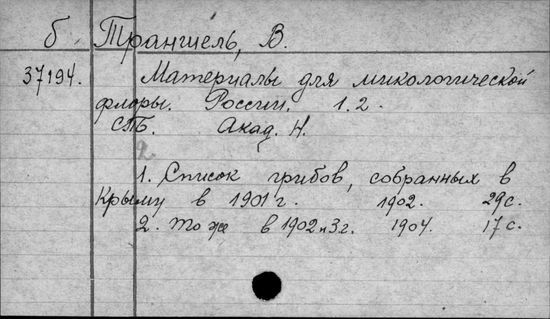 б Траншель, В.
37194. Материалы для микологической
флоры. России. 1. 2.
СПБ. Акад. Н.
2
1. Список грибов, собранных в
Крыму в 1901 г. 1902. 29 с.
2. То же в 1902 и 3 г. 1904. 17 с.